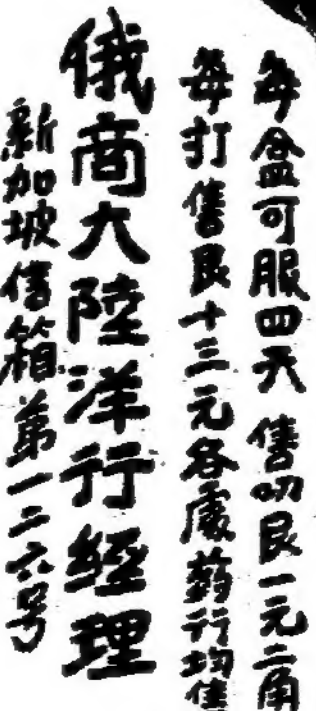 每盒可服四天 售叻艮一元二角
每打售艮十三元各處葯行均售
俄商大陸洋行經理
新加坡信箱第一二六号